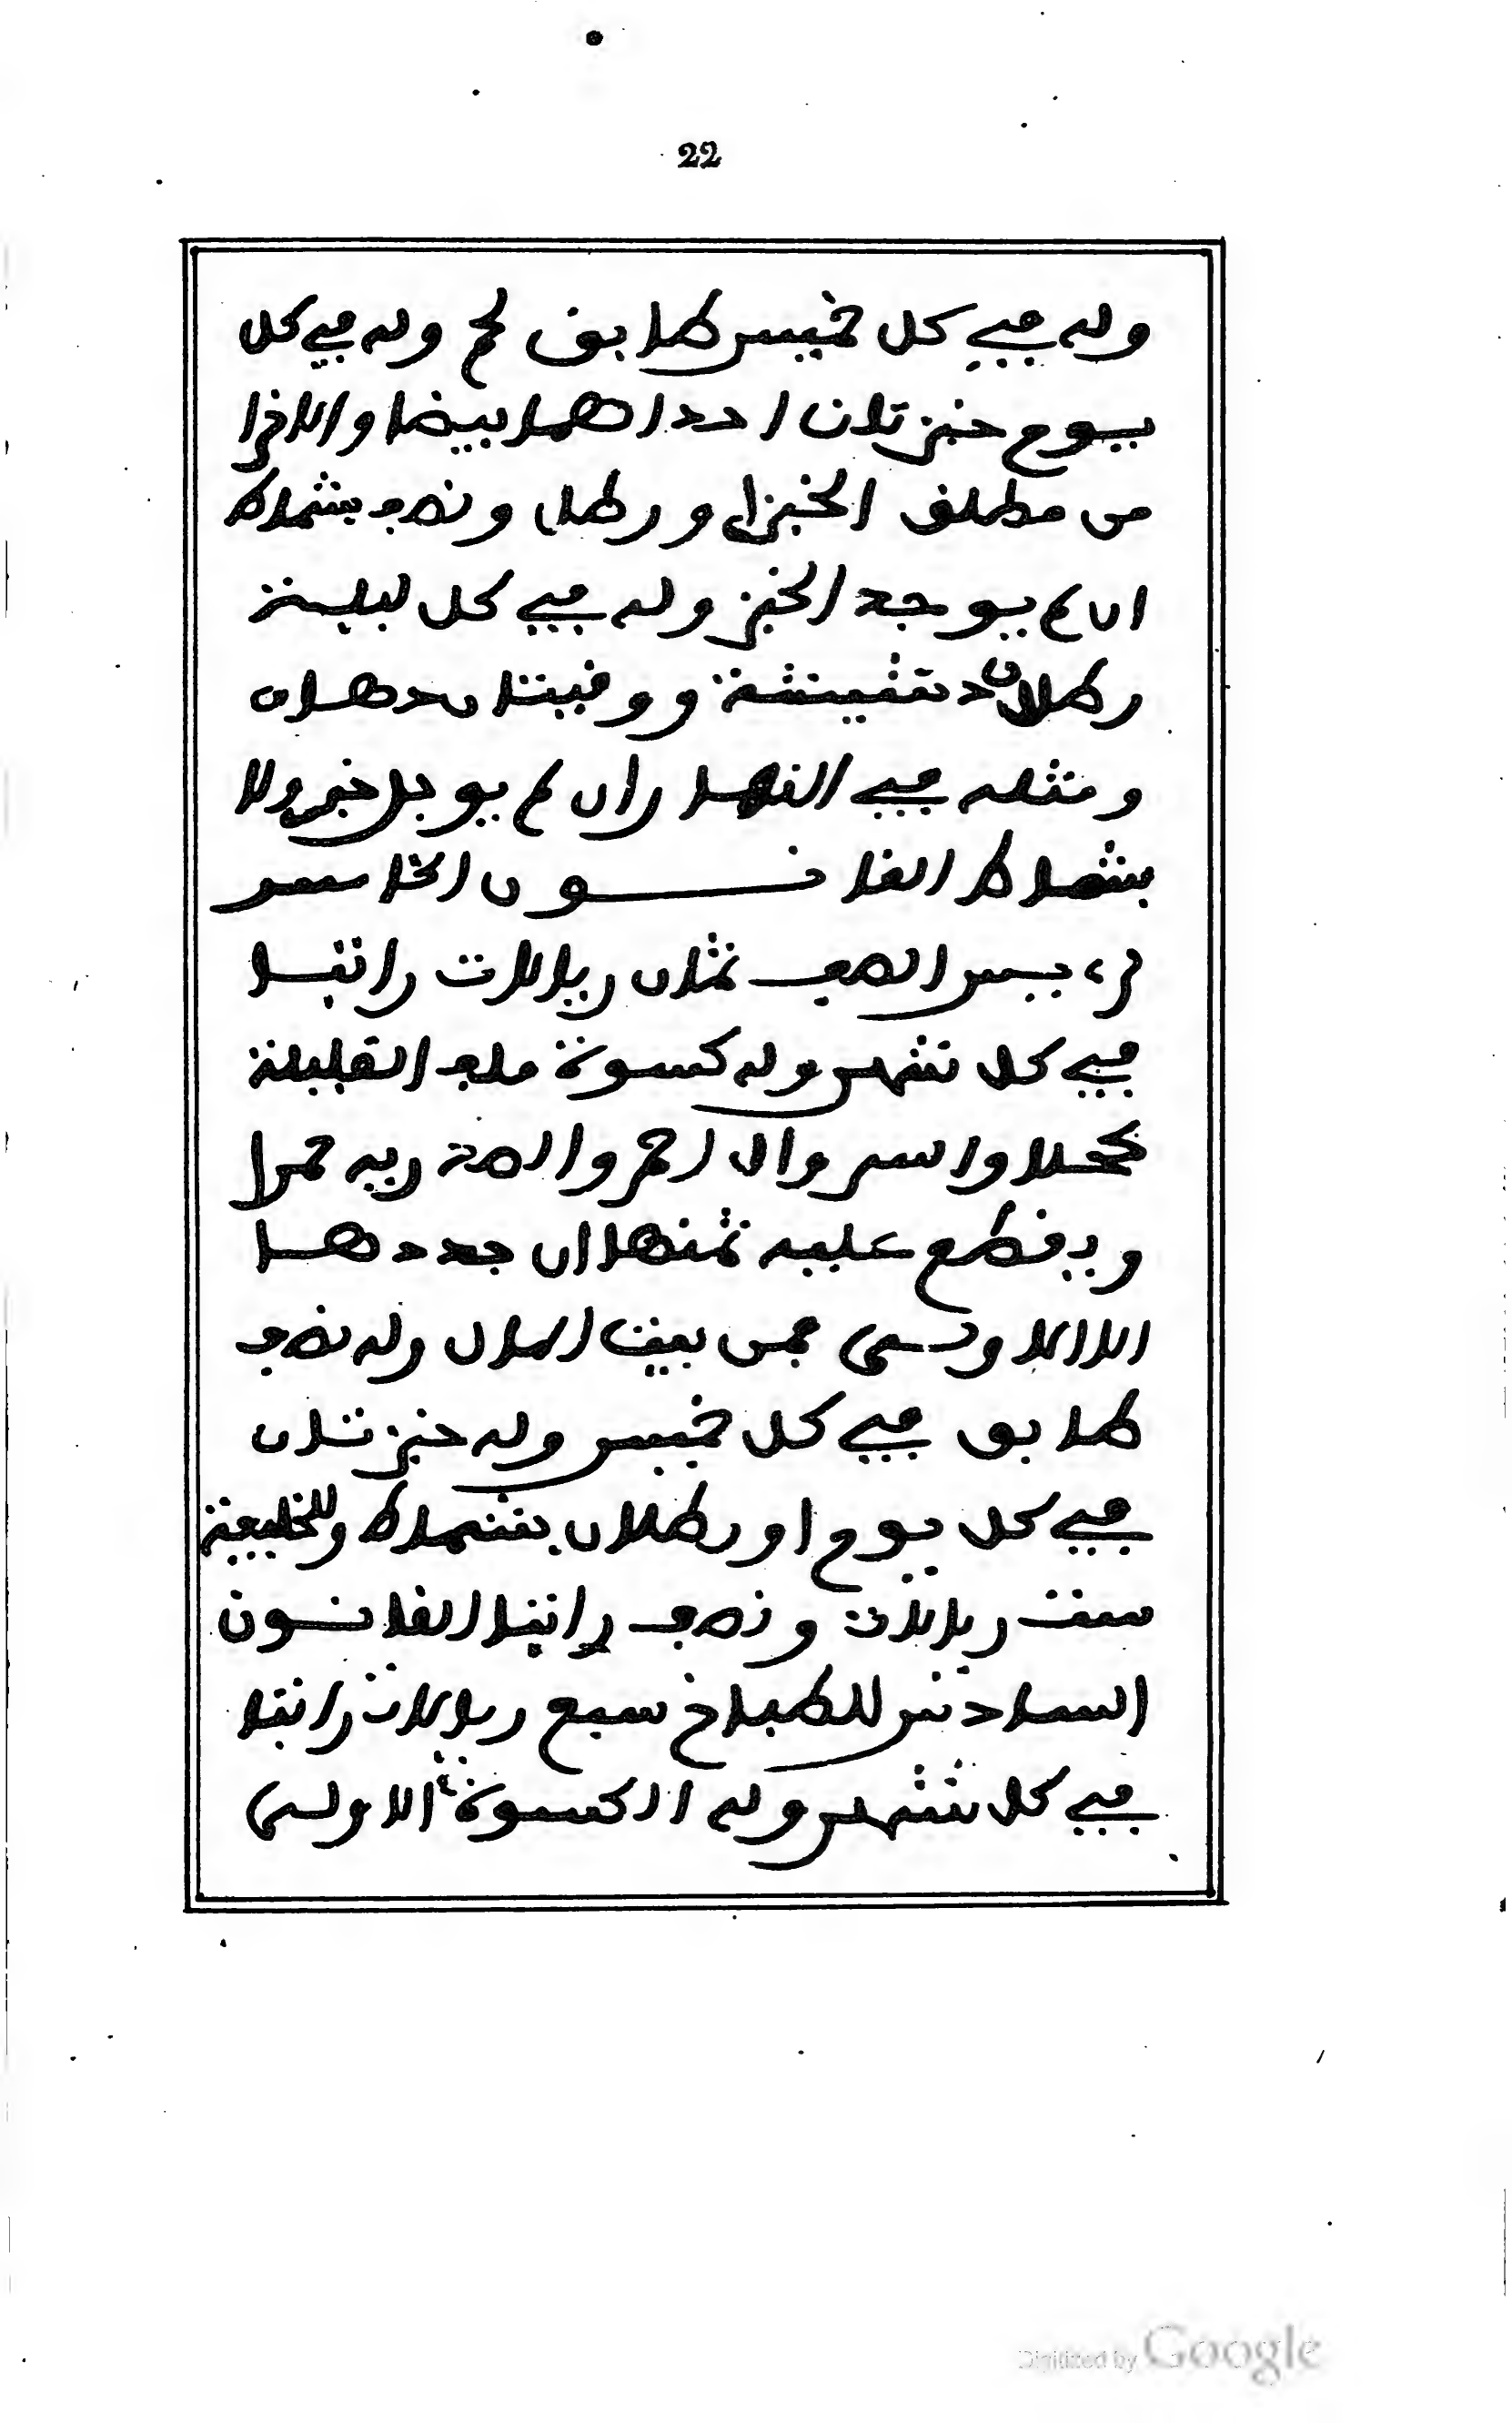 22
وله في كل خميس طابق لحم وله في كل
يوم خبزتان احداهما بيضا والاخرا
من مطلق الخبز او رطل ونصف بشماط
ان لم يوجد الخبز وله في كل ليلة
رطلان دشيشة ووقيتان دهان
ومثله في النهار ان لم يوجد خبز ولا
بشماط القانون الخامس
لرءيس الصف ثمان ريالات راتبا
في كل شهر وله كسوة ملف القليلة
كحلا والسروال احمر والصدرية حمرا
ويقطع عليه ثمنها ان جددها
الا الاولى فمن بيت المال وله نصف
طابق في كل خميس وله خبزتان
في كل يوم او رطلان بشماط وللخليفة
ست ريالات ونصف راتبا القانون
السادس للطباخ سبع ريالات راتبا
في كل شهر وله الكسوة الاولى
Digitized by Google